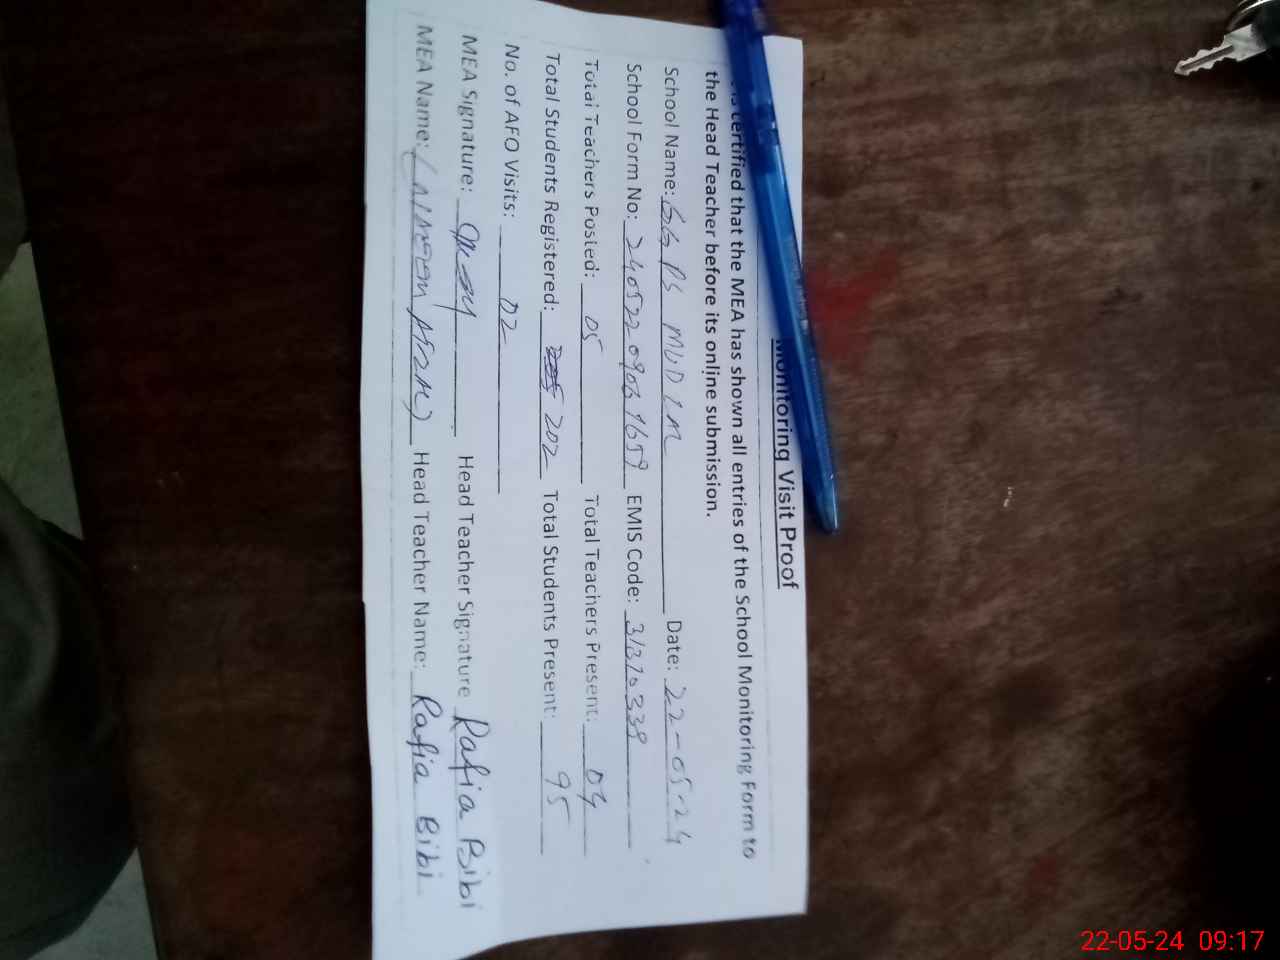 Monitoring Visit Proof
is certified that the MEA has shown all entries of the School Monitoring Form to
the Head Teacher before its online submission.
School Name: GGPS MUDIM Date: 22-05-24
School Form No: EMIS Code: 31320338
Total Teachers Posted: 05 Total Teachers Present: 04
Total Students Registered: 202 Total Students Present: 95
No. of AFO Visits: 02
MEA Signature: Head Teacher Signature Rafia Bibi
MEA Name: Head Teacher Name: Rafia Bibi
22-05-24 09:17